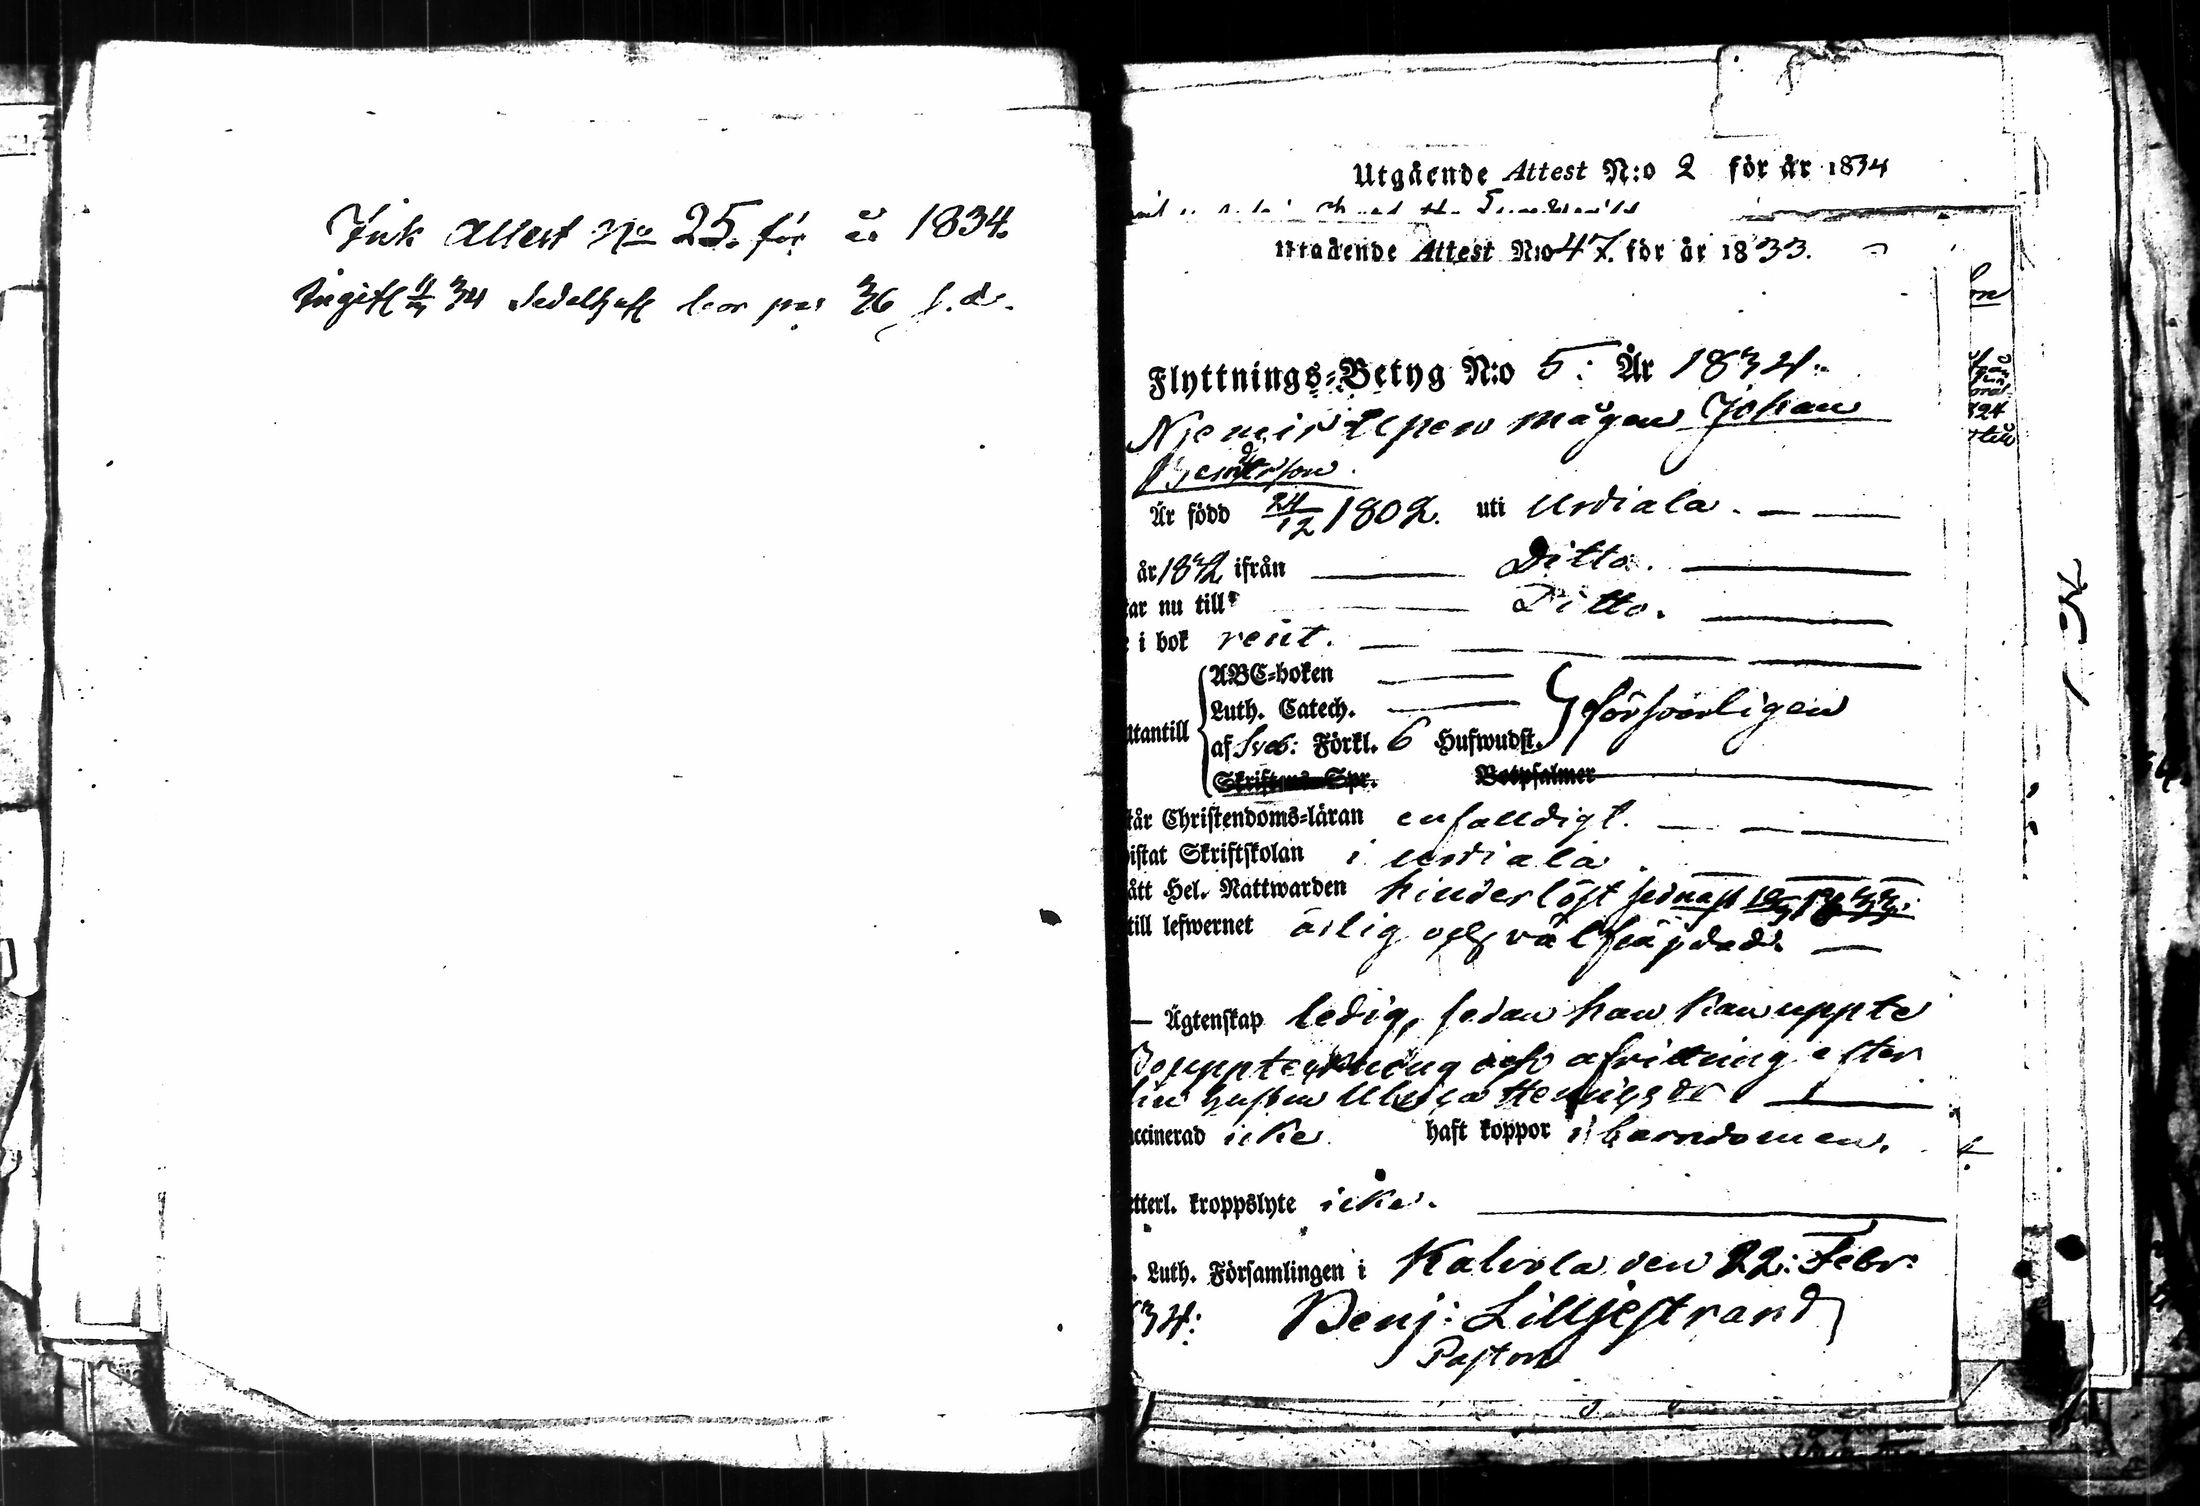 Ink Attest No 25. för år 1834.
Ingift 34 Sedelhaft bor på 36 s. d.
Utgående Attest N:o 2 för år 1834
Utgående Attest N:o 47. för år 1833.
Flyttnings-Betyg N:o 5: År 1834.
mågen Johan
Är född 24/12 1802. uti Urdiala.
år 1832 ifrån Ditto.
tar nu till Ditto.
i bok rent.
ABC-boken
Luth. Catech. försvarligen
utantill
af Sveb: Förkl. 6 Hufwudst.
Skriftens Spr. Botpsalmer
står Christendoms-läran enfalldigt.
wistat Skriftskolan i Urdiala.
ått Hel. Nattwarden hinderlöst sednast
till lefwernet ärlig och välfräjdad.
— Ägtenskap ledig, sedan han kan uppte
Bouppteckning och afvittring efter
sin hustru Ulrica Henricsdr
accinerad icke haft koppor i barndomen.
etterl. kroppslyte icke.
. Luth. Församlingen i Kalvola den 22: Febr:
34: Benj: Lilljestrand
Pastor